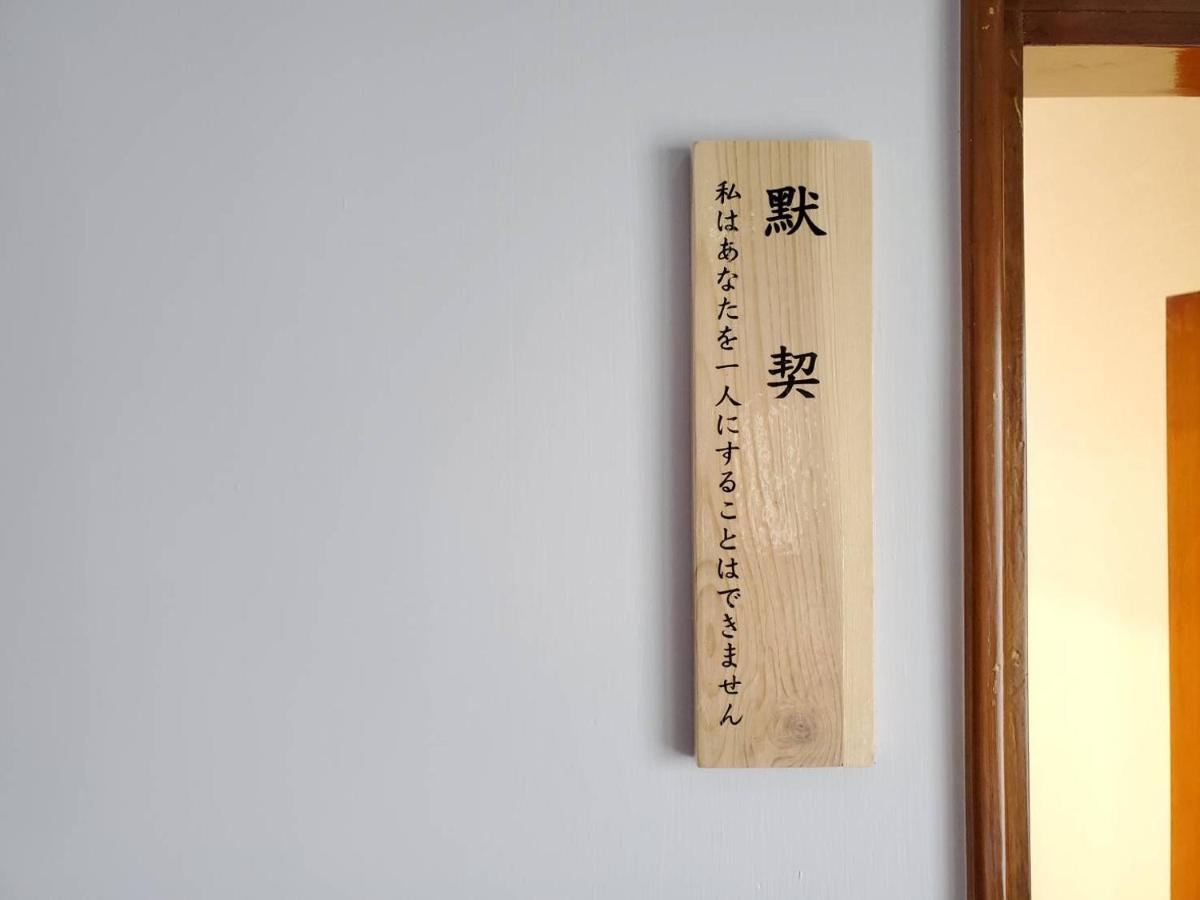 默契
私はあなたを一人にすることはできません